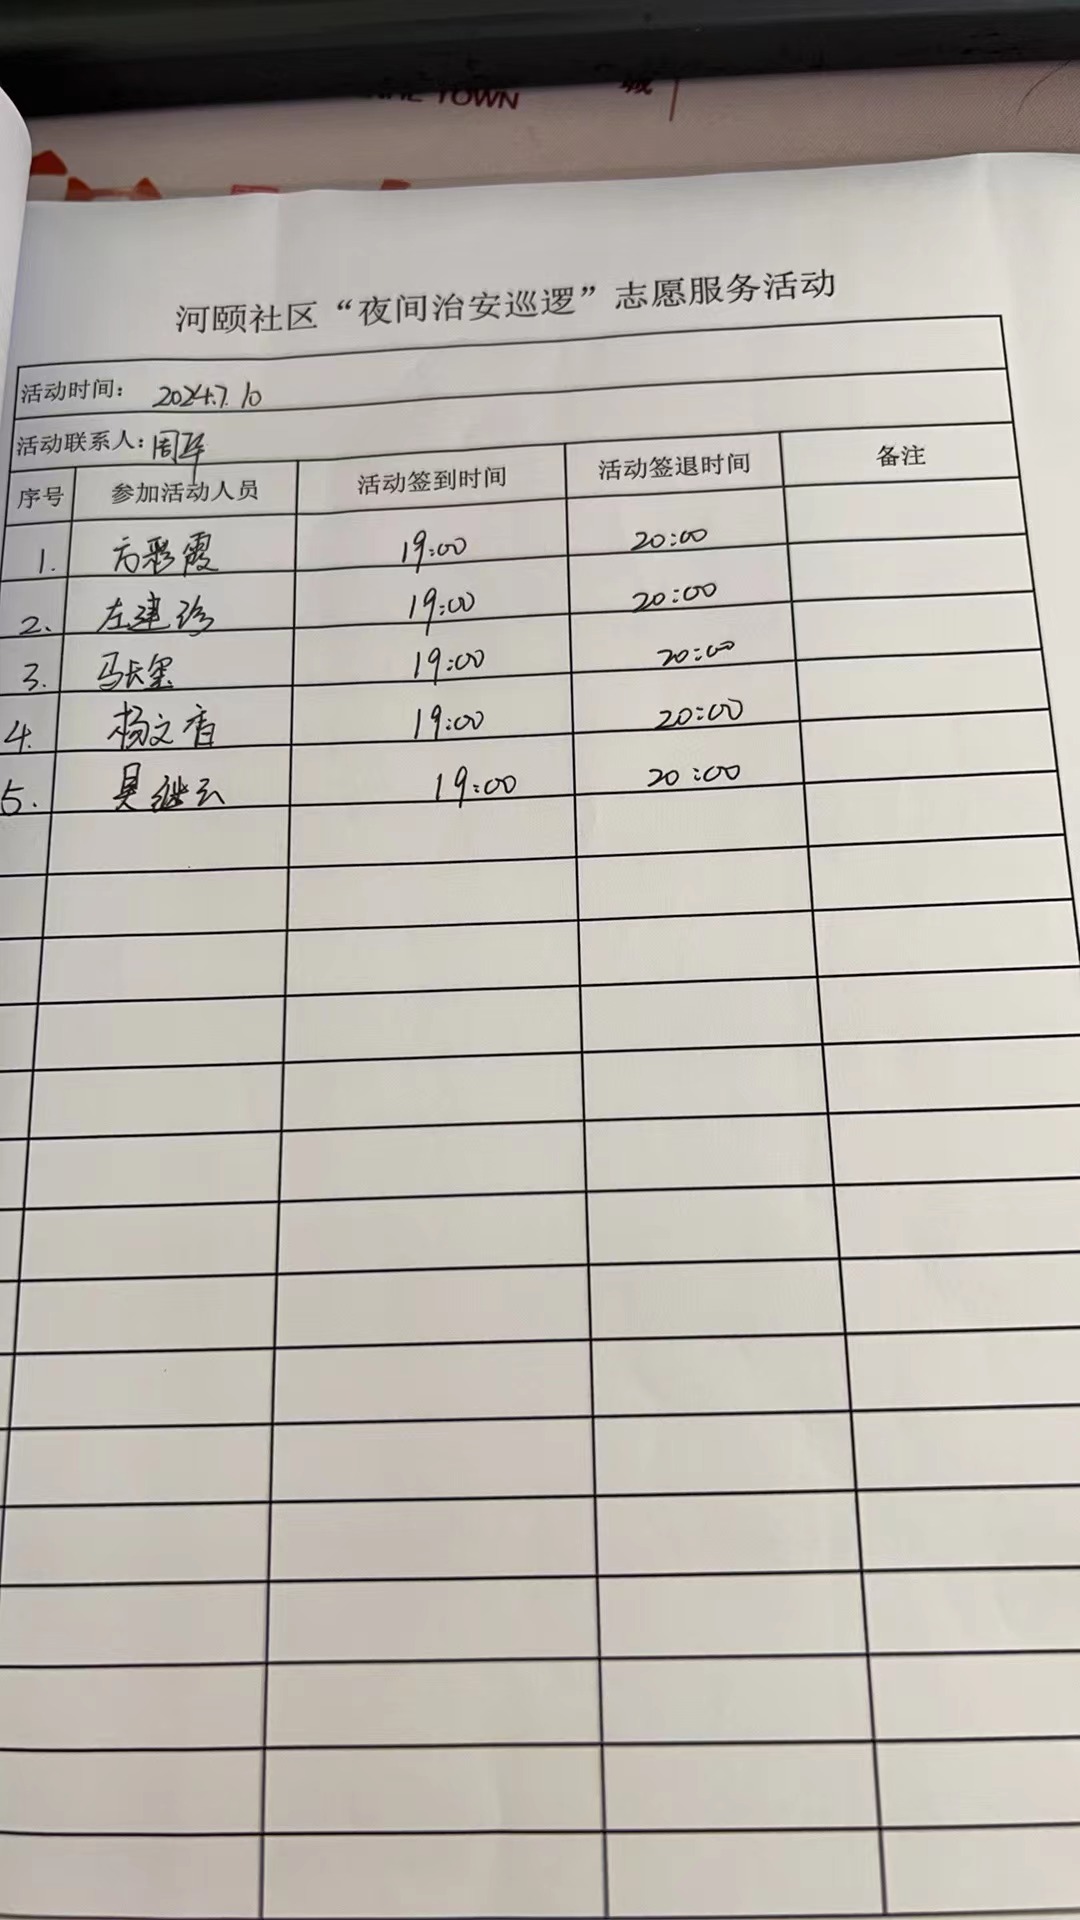 TOWN
城
河颐社区“夜间治安巡逻”志愿服务活动
活动时间： 2024.7.10
活动联系人：周军
序号 参加活动人员 活动签到时间 活动签退时间 备注
1. 方彩霞 19:00 20:00
2. 左建珍 19:00 20:00
3. 马长玺 19:00 20:00
4. 杨文香 19:00 20:00
5. 吴继云 19:00 20:00